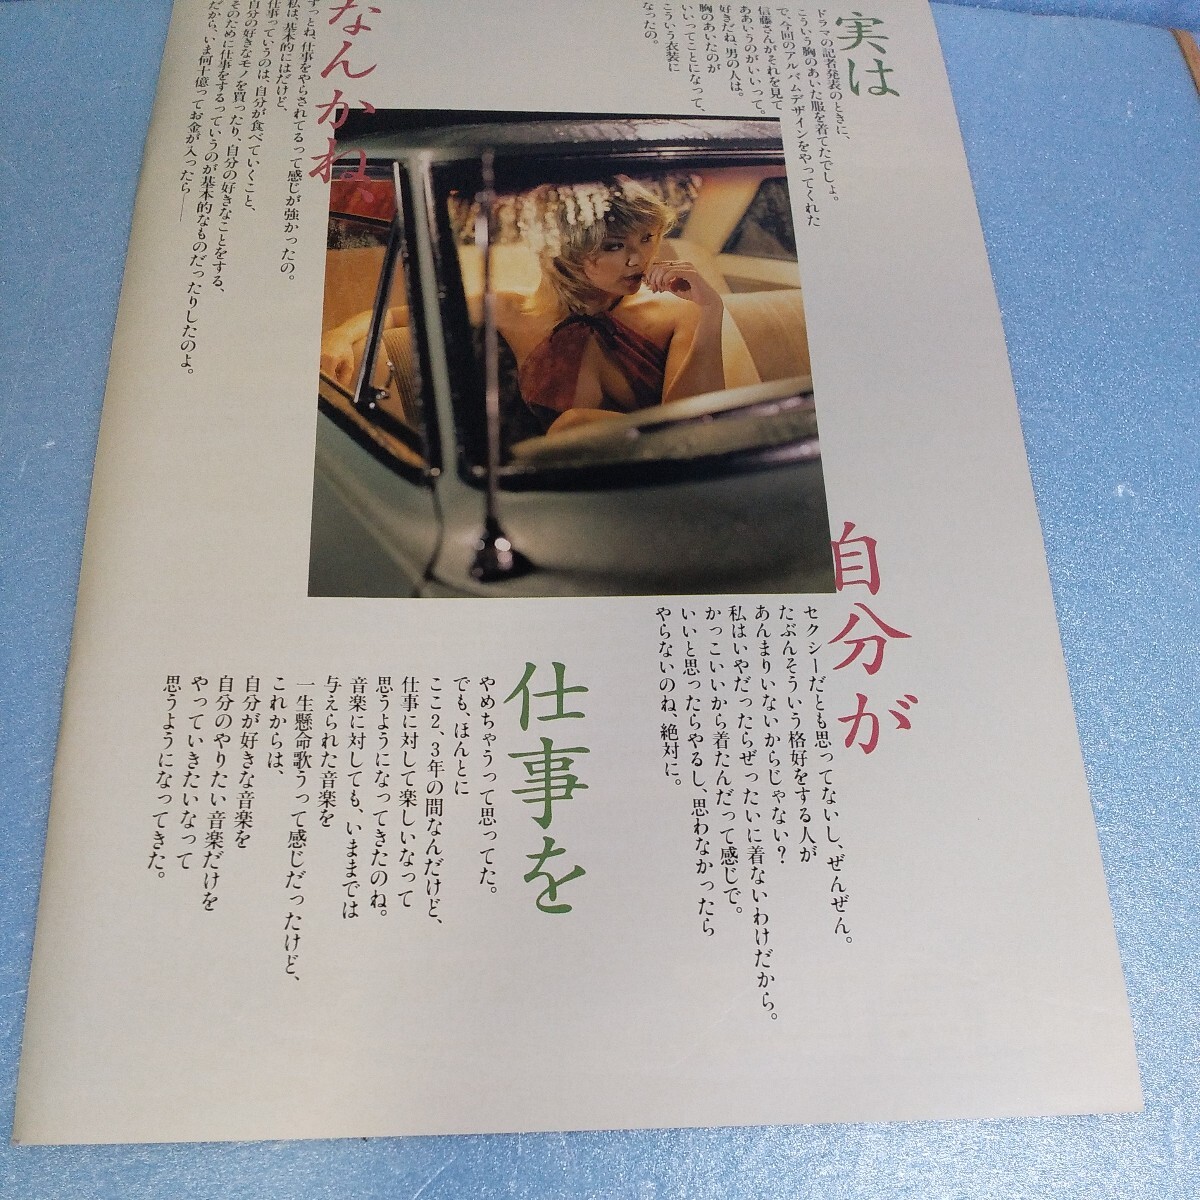 実は
ドラマの記者発表のときに、
こういう胸のあいた服を着てたでしょ。
で、今回のアルバムデザインをやってくれた
信藤さんがそれを見て
ああいうのがいいって。
好きだね、男の人は。
胸のあいたのが
いいってことになって、
こういう衣装に
なったの。
自分が
セクシーだとも思ってないし、ぜんぜん。
たぶんそういう格好をする人が
あんまりいないからじゃない?
私はいやだったらぜったいに着ないわけだから。
かっこいいから着たんだって感じで。
いいと思ったらやるし、思わなかったら
やらないのね、絶対に。
なんかね、
ずっとね、仕事をやらされてるって感じが強かったの。
私は、基本的にはだけど、
仕事っていうのは、自分が食べていくこと、
自分の好きなモノを買ったり、自分の好きなことをする、
そのために仕事をするっていうのが基本的なものだったりしたのよ。
だから、いま何十億ってお金が入ったら——
仕事を
やめちゃうって思ってた。
でも、ほんとに
ここ2、3年の間なんだけど、
仕事に対して楽しいなって
思うようになってきたのね。
音楽に対しても、いままでは
与えられた音楽を
一生懸命歌うって感じだったけど、
これからは、
自分が好きな音楽を
自分のやりたい音楽だけを
やっていきたいなって
思うようになってきた。